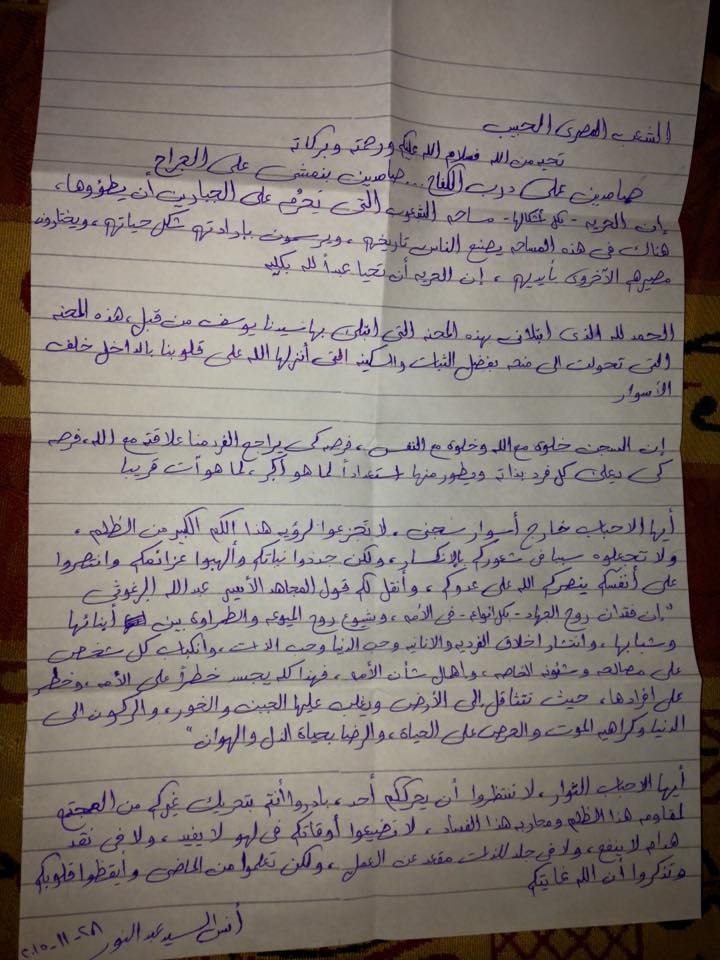 الشعب المصرى الحبيب
تحيه من الله فسلام الله عليكم ورحمته وبركاته
صامدين على درب الكفاح... صامدين بنمشى على الجراح
إن الحريه - بكل أشكالها - مساحه الشعوب التى يَحْرُم على الجبارين أن يطؤوها،
هناك فى هذه المساحه يصنع الناس تاريخهم، ويرسمون بإرادتهم شكل حياتهم، ويختارون
مصيرهم الآخروى بأيديهم، إن الحريه أن تحيا عبداً لله بكليه
الحمد لله الذى ابتلانى بهذه المحنه التى ابتلى بها سيدنا يوسف من قبل، هذه المحنه
التى تحولت الى منحه بفضل الثبات والسكينه التى أنزلها الله على قلوبنا بالداخل خلف
الأسوار
إن السجن خلوة مع الله وخلوة مع النفس، فرصه كى يراجع الفرد منا علاقته مع الله، فرصه
كى كل فرد بذاته ويطور منها استعداداً لما هو أكبر، لما هو أت قريبا
أيها الاحباب خارج أسوار سجنى، لا تجزعوا لرؤيه هذا الكم الكبير من الظلم،
ولا تجعلوه سببا فى شعوركم بالإنكسار، ولكن جددوا نياتكم وألهبوا عزائمكم وانتصروا
على أنفسكم ينصركم الله على عدوكم، وأنقل لكم قول المجاهد الأسير عبدالله البرغوثى
"إن فقدان روح الجهاد - بكل انواعه - فى الأمه، وشيوع روح الميوعه والطراوه بين أبنائها
وشبابها، وانتشار اخلاق الفرديه والانانيه وحب الدنيا وحب الذات، وانكباب كل شخص
على مصالحه وشئونه الخاصه، واهمال شأن الأمه، فهذا كله يجسد خطراً على الأمه، وخطر
على افرادها، حيث تتثاقل إلى الأرض ويغلب عليها الجبن والخور، والركون الى
الدنيا وكراهيه الموت والحرص على الحياة، والرضا بحياة الذل والهوان"
أيها الاحباب الثوار، لا تنتظروا أن يحرككم أحد، بادروا أنتم بتحريك غيركم من المجتمع
لمقاومه هذا الظلم ومحاربه هذا الفساد، لا تضيعوا أوقاتكم فى لهو لا يفيد، ولا فى نقد
هدام لا ينفع، ولا فى جلد للذات مقعد عن العمل، ولكن تعلموا من الماضى وأيقظوا قلوبكم
وتذكروا أن الله غايتكم
أنس السيد عبد النور
٢٨-١١-٢٠١٥